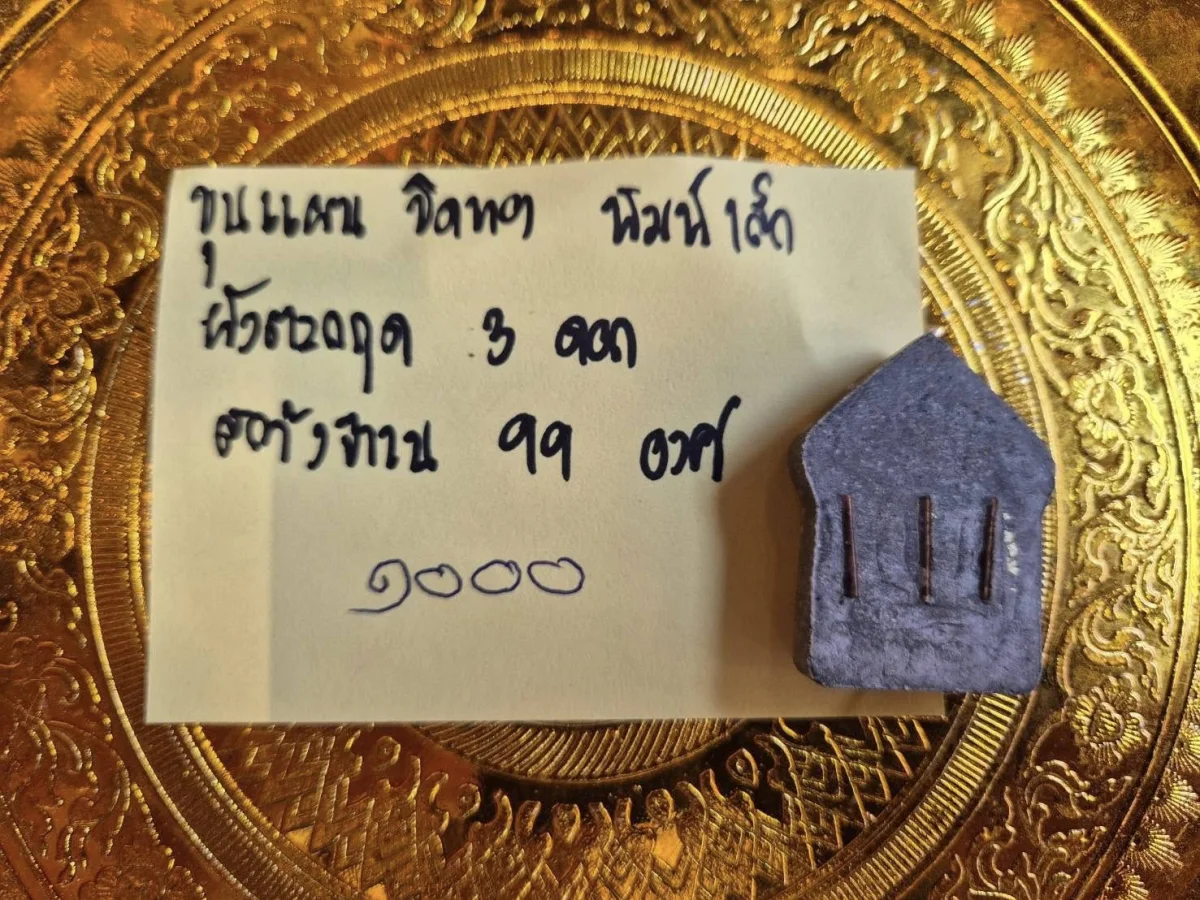 ขุนแผน พิมพ์เล็ก
ฝังตะกรุด 3 ดอก
สร้าง 99 องค์
๑๐๐๐